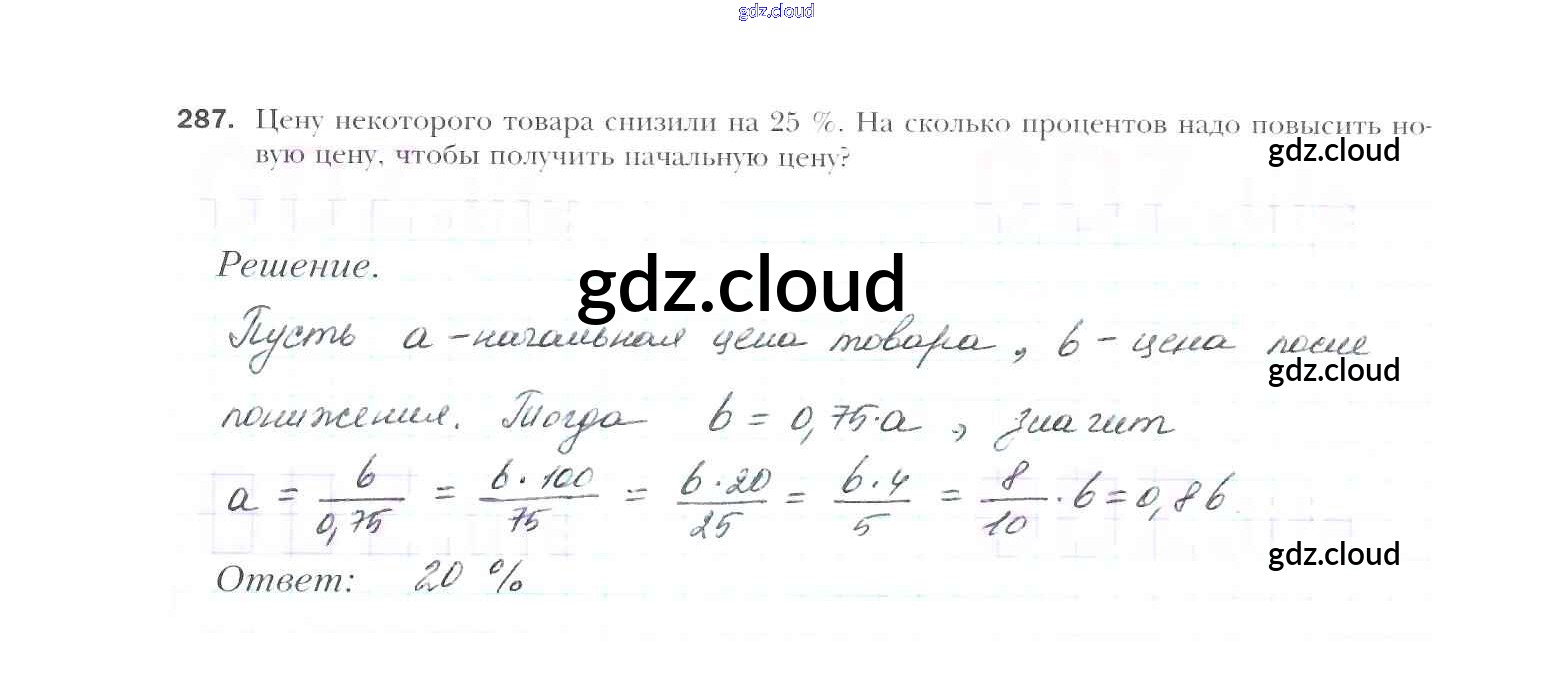 gdz.cloud
287. Цену некоторого товара снизили на 25 %. На сколько процентов надо повысить но-
gdz.cloud
вую цену, чтобы получить начальную цену?
Решение.
gdz.cloud
Пусть a - начальная цена товара, b - цена после
gdz.cloud
понижения. Тогда b = 0,75·a, значит
a = b/0,75 = b·100/75 = b·20/25 = b·4/5 = 8/10 · b = 0,8b
gdz.cloud
Ответ: 20 %